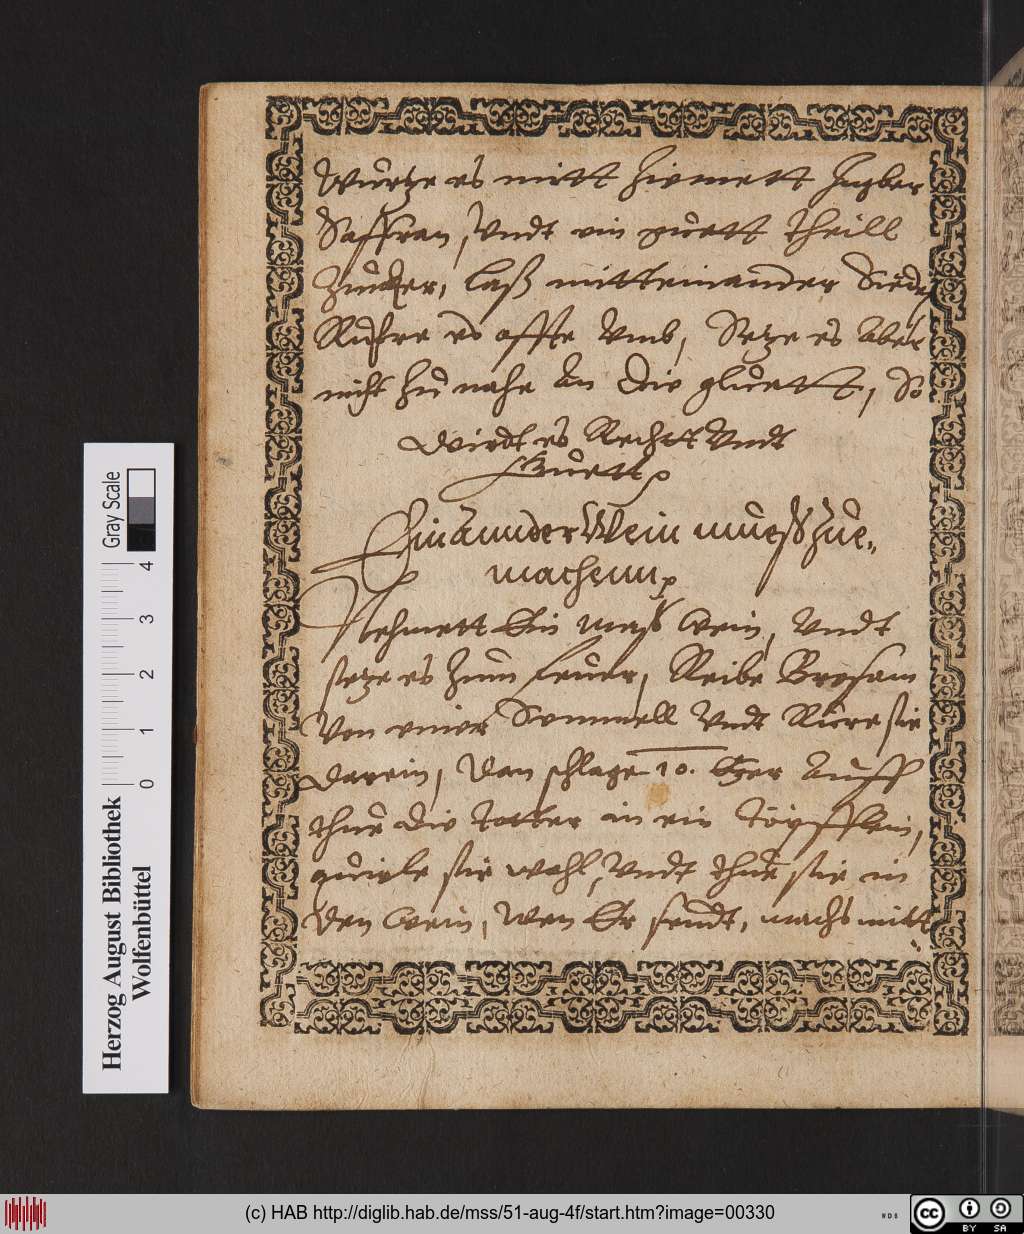 Würtze es mitt Zimett Ingber
Saffran, Vndt ein guett theill
Zuucker, laß mitteinander Sieden
Rühre es offte Vmb, Setze es aber
nicht Zu nahe an die gluett, So
wirdt es Recht Vndt
Guett
Ein Annder Wein mueß Zue
machenn
Nehmett Ein maß wein, Vndt
setze es Zum feuer, Reibe Brosam
Von einer Semmell Vndt Rüre sie
darein, dan schlage 10. Eyer auff
thue die totter in ein Töpfflein,
quirle sie wohl, Vndt thue sie in
den wein, wen Er seudt, machs mitt
Herzog August Bibliothek
Wolfenbüttel
Gray Scale
0 1 2 3 4
(c) HAB http://diglib.hab.de/mss/51-aug-4f/start.htm?image=00330
WDB
cc BY SA